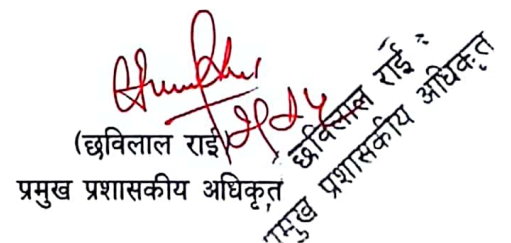 (छविलाल राई)
प्रमुख प्रशासकीय अधिकृत
छविलाल राई
प्रमुख प्रशासकीय अधिकृत